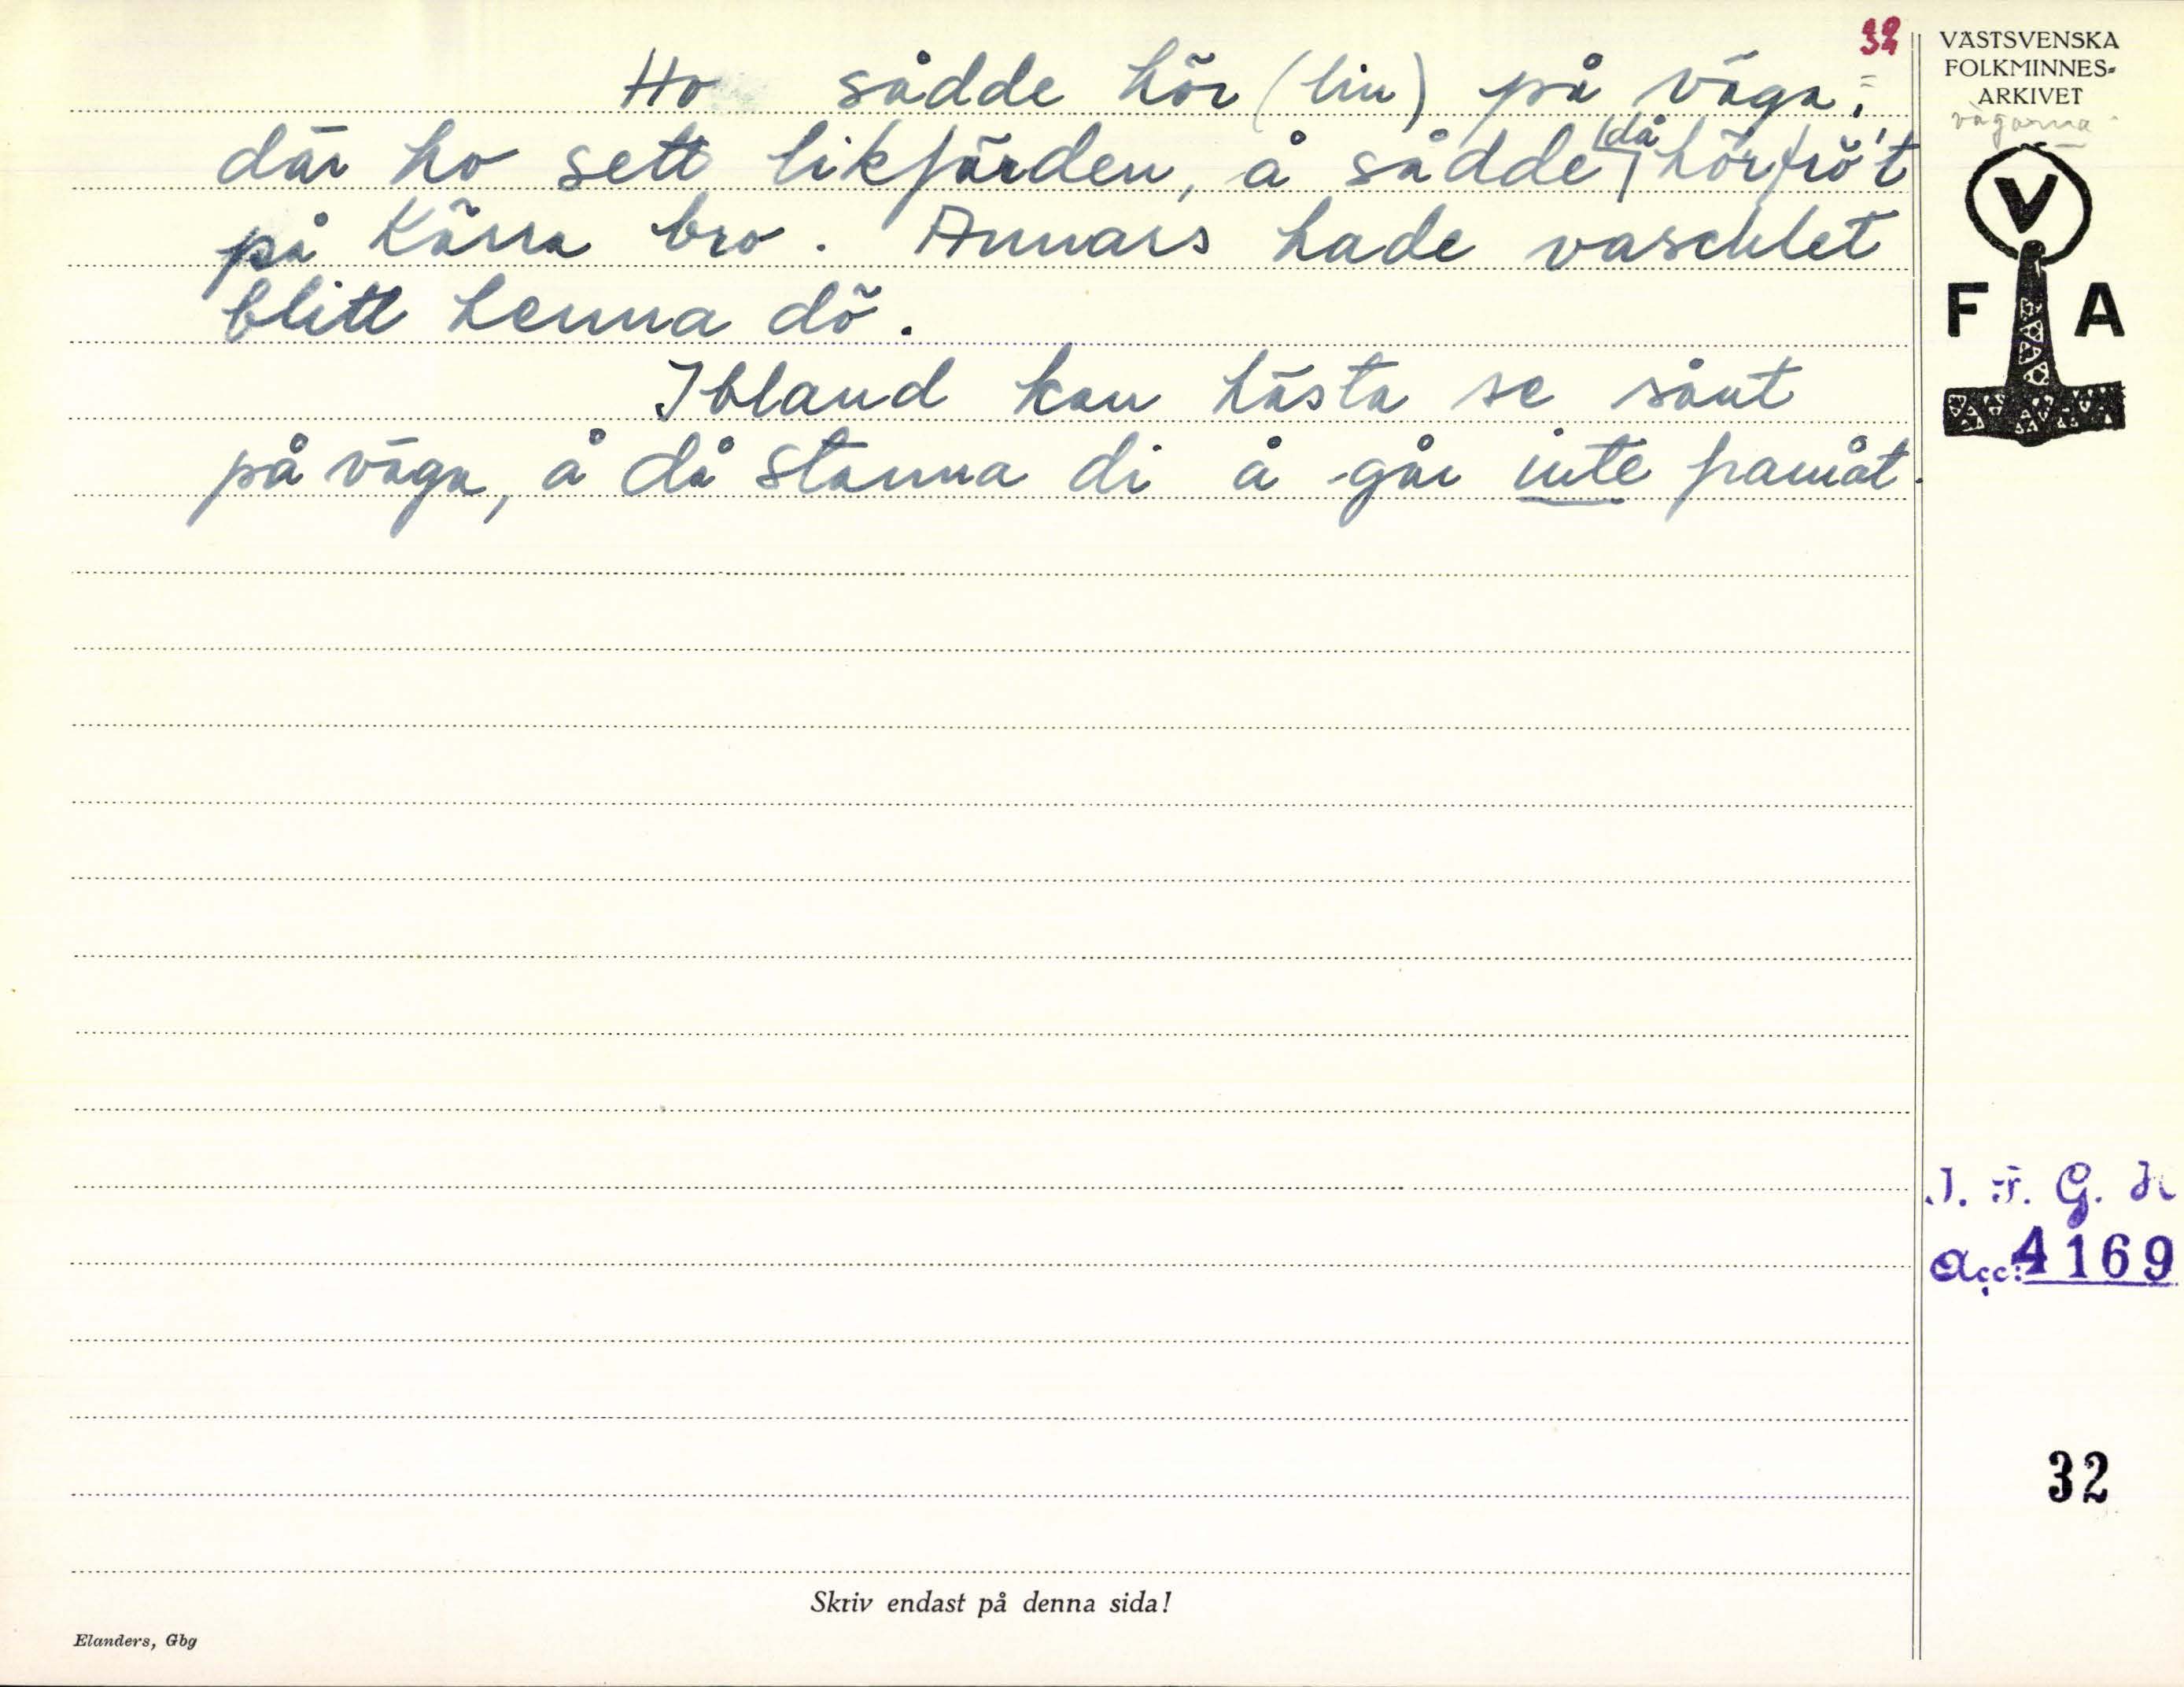 32
VÄSTSVENSKA
FOLKMINNES-
ARKIVET
vägarna
V
F A
Ho sådde hör (lin) på väga,
där ho sett likfärden, å sådde då hörfrö't
på Kärra bro. Annars hade vaschlet
blitt henna dö.
Ibland kan hästa se sånt
på väga, å då stanna di å går inte framåt.
J. F. G. H
Acc: 4169
32
Skriv endast på denna sida!
Elanders, Gbg